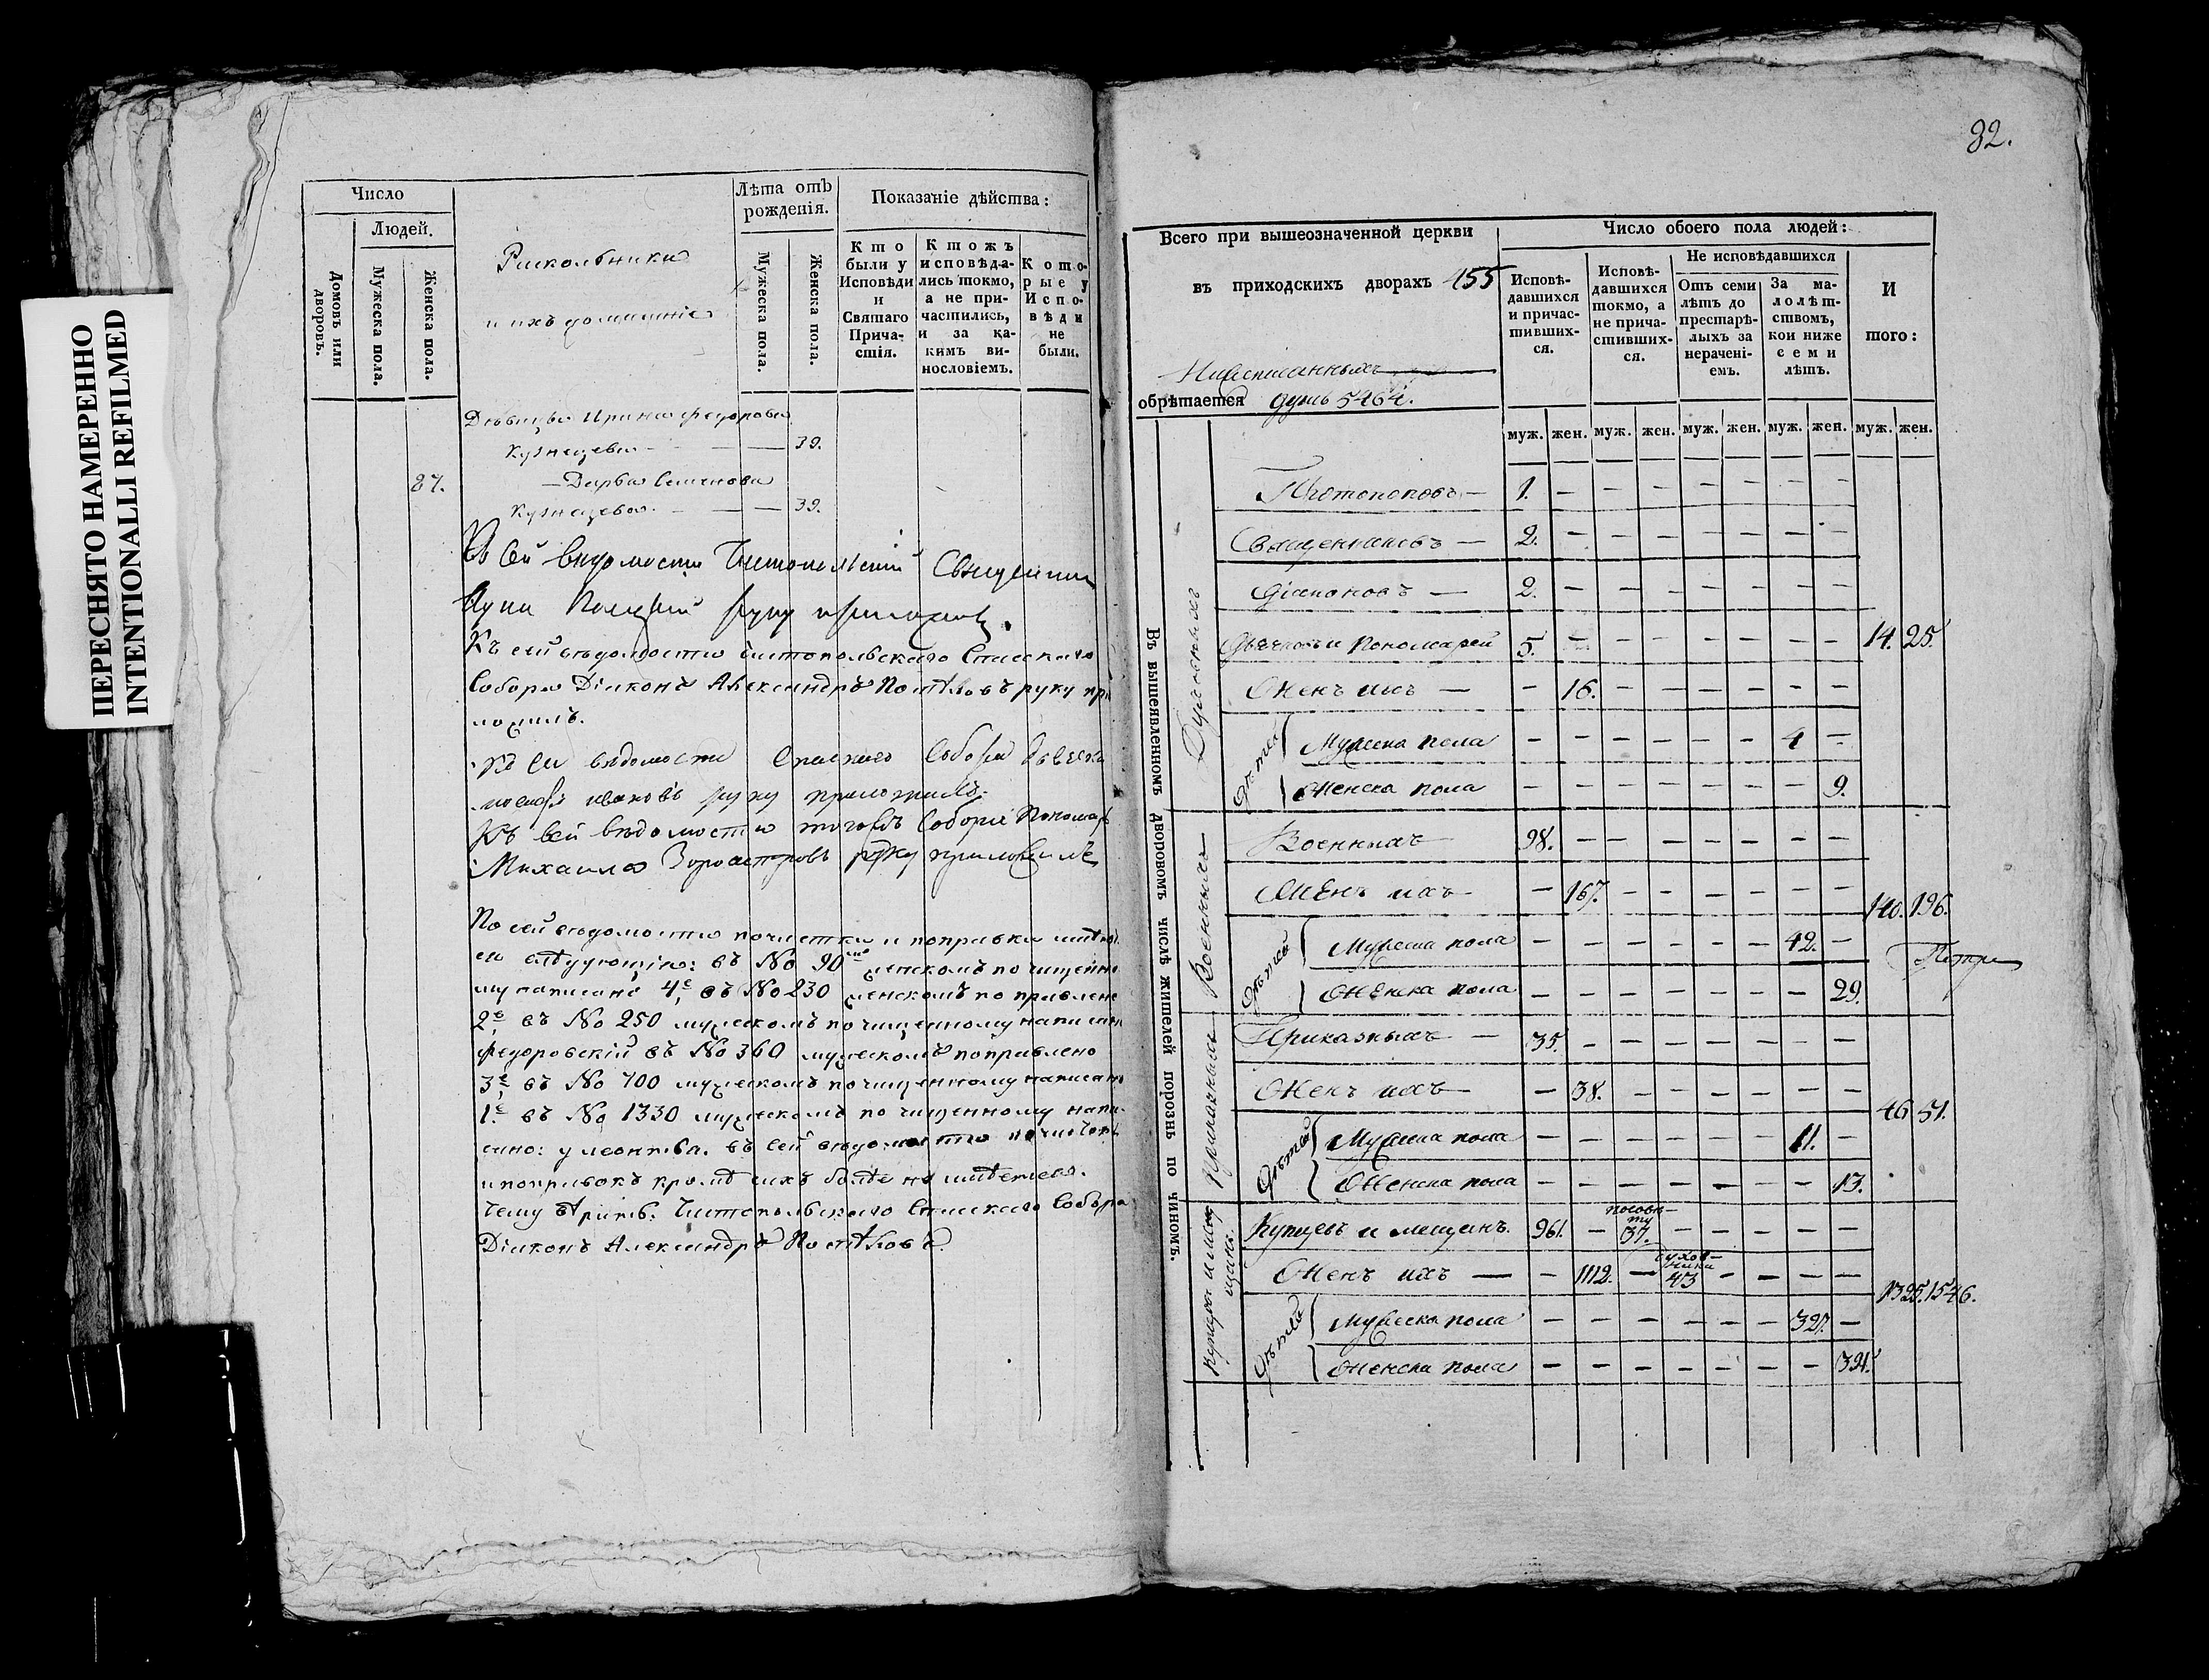 ПЕРЕСНЯТО НАМЕРЕННО
INTENTIONALLI REFILMED
Число
Людей.
Домовъ или дворовъ.
Мужеска пола.
Женска пола.
Раскольники
и ихъ домашніе
Лѣта отъ рожденія.
Мужеска пола.
Женска пола.
Показаніе дѣйства:
Кто были у Исповѣди и Святаго Причастія.
Ктожъ исповѣдались токмо, а не причастились, и за какимъ винословіемъ.
Которые у Исповѣди не были.
Дѣвицы Ирина Федорова
Кузнецева — — 39.
87. — Дарья Семенова
Кузнецева — — 39.
Къ сей ведомости Чистопольскій Священник
руку приложилъ.
Къ сей вѣдомости Чистопольскаго Спаскаго
Собора Діаконъ Александръ руку при
ложилъ.
Къ сей вѣдомости Спаскаго Собора
Ивановъ руку приложилъ.
Къ сей вѣдомости тогожъ Собора Пономарь
Михаила руку приложилъ
По сей вѣдомости почистки и поправки имѣют
ся слѣдующія: въ No 90 женскомъ по чищенно
му написано 4е, въ No 230 женскомъ поправлено
2е, въ No 250 мужескомъ по чищенному написано
Федоровскій въ No 360 мужескомъ поправлено
3е, въ No 700 мужескомъ по чищенному написано
1е, въ No 1330 мужескомъ по чищенному напи-
сано: у Леонтья. въ сей вѣдомости почисток
и поправокъ кромѣ сихъ болѣе не имѣется.
Чему Чистопольскаго Спаскаго Собора
Діаконъ Александръ
82.
Всего при вышеозначенной церкви
въ приходскихъ дворахъ 455
Нижеписанныхъ
обрѣтается душъ 5464.
Число обоего пола людей:
Исповѣдавшихся и причастившихся.
Исповѣдавшихся токмо, а не причастившихся.
Не исповѣдавшихся
Отъ семи лѣтъ до престарѣлыхъ за нераченіемъ.
За малолѣтствомъ, кои ниже семи лѣтъ.
И того:
муж. жен. муж. жен. муж. жен. муж. жен. муж. жен.
Въ вышеявленномъ дворовомъ числѣ жителей порознь по чиномъ.
Духовныхъ
Протопоповъ — 1. — — — — — — —
Священниковъ — 2. — — — — — — —
Діаконовъ — 2. — — — — — — —
Дьячковъ и Пономарей 5. — — — — — — — 14. 25.
Женъ ихъ — — 16. — — — — — —
Дѣтей
Мужеска пола — — — — — — 4 —
Женска пола — — — — — — — 9.
Военныхъ
Военныхъ 98. — — — — — — —
Женъ ихъ — 167. — — — — — — 140. 196.
Дѣтей
Мужеска пола — — — — — — 42. —
Женска пола — — — — — — — 29.
Приказныхъ
Приказныхъ — 35. — — — — — — —
Женъ ихъ — — 38. — — — — — — 46 51.
Дѣтей
Мужеска пола — — — — — — 11. —
Женска пола — — — — — — — 13.
Купцевъ и мещанъ.
Купцевъ и мещанъ. 961. — 37. — — — — —
Женъ ихъ — — 1112. — 43 — — — — 1325. 1546.
Дѣтей
Мужеска пола — — — — — — 327. —
Женска пола — — — — — — — 391.